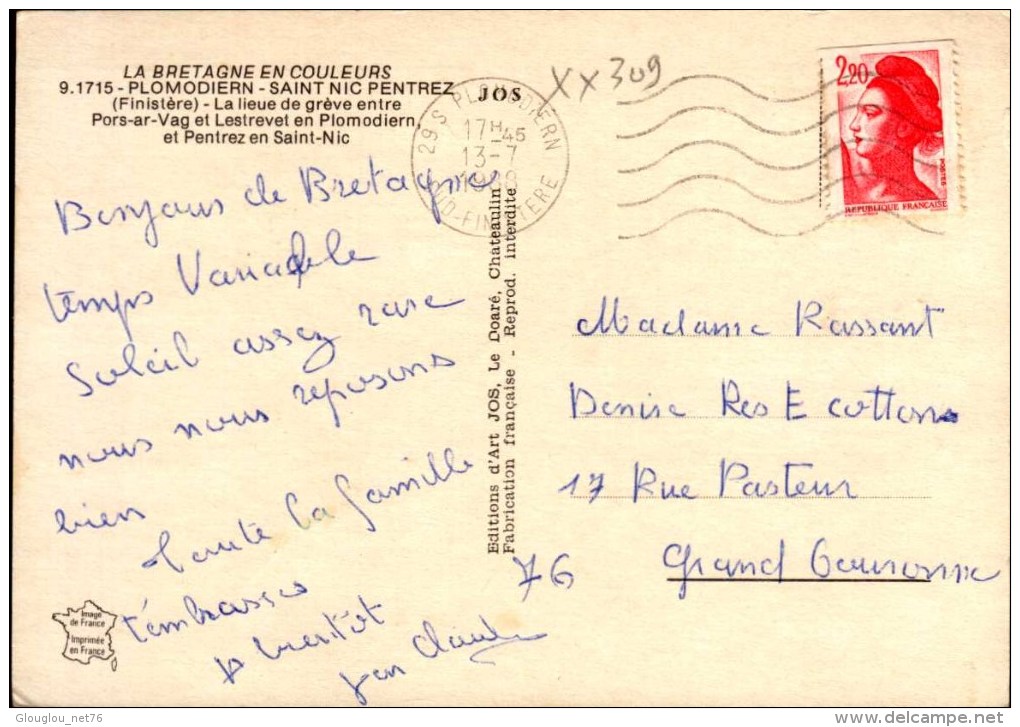 LA BRETAGNE EN COULEURS
9.1715 - PLOMODIERN - SAINT NIC PENTREZ
(Finistère) - La lieue de grève entre
Pors-ar-Vag et Lestrevet en Plomodiern,
et Pentrez en Saint-Nic
JOS
XX309
29 S PLOMODIERN
17H45
13-7
1988
SUD-FINISTERE
2,20
POSTES
REPUBLIQUE FRANÇAISE
Bonjour de Bretagne
temps Variable
Soleil assez rare
nous nous reposons
bien
toute la famille
t'embrasse
à bientôt
Jean Claude
Editions d'Art JOS, Le Doaré, Chateaulin
Fabrication française - Reprod. interdite
Madame Rassant
Denise Res E cottons
17 Rue Pasteur
76 Grand Couronne
Image
de France
Imprimée
en France
Glouglou_net76